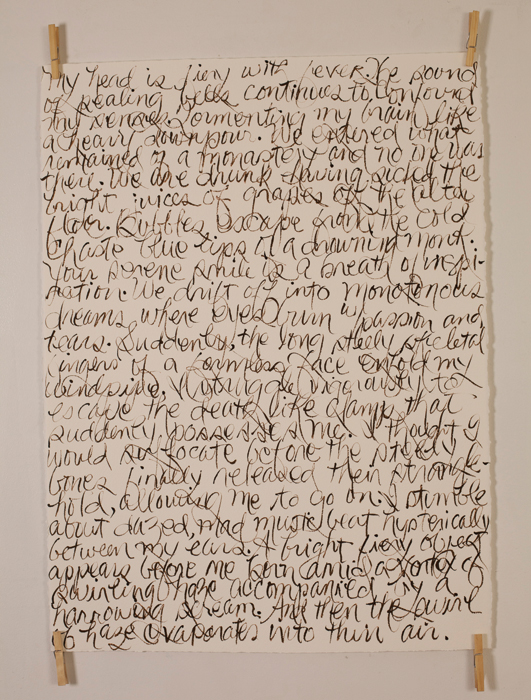 My head is fiery with fever. The sound
of pealing bells continues to confound
my senses, tormenting my brain like
a heavy downpour. We entered what
remained of a monastery and no one was
there. We are drunk having sucked the
bright juices of grapes off the altar
floor. Bubbles escape from the cold
chaste blue lips of a drowning monk.
Your serene smile is a breath of inspi-
ration. We drift off into monotonous
dreams, where eyes burn w/ passion and
tears. Suddenly, the long steely skeletal
fingers of a formless face enfold my
windpipe, I struggle vigorously to
escape the death like clamp that
suddenly possesses me. I thought I
would suffocate before the steely
bones finally released their strangle-
hold, allowing me to go on. I stumble
about dazed, mad music beat hysterically
between my ears. A bright fiery object
appears before me amid a vortex of
swirling haze accompanied by a
harrowing scream. And then the swirl
of haze evaporates into thin air.